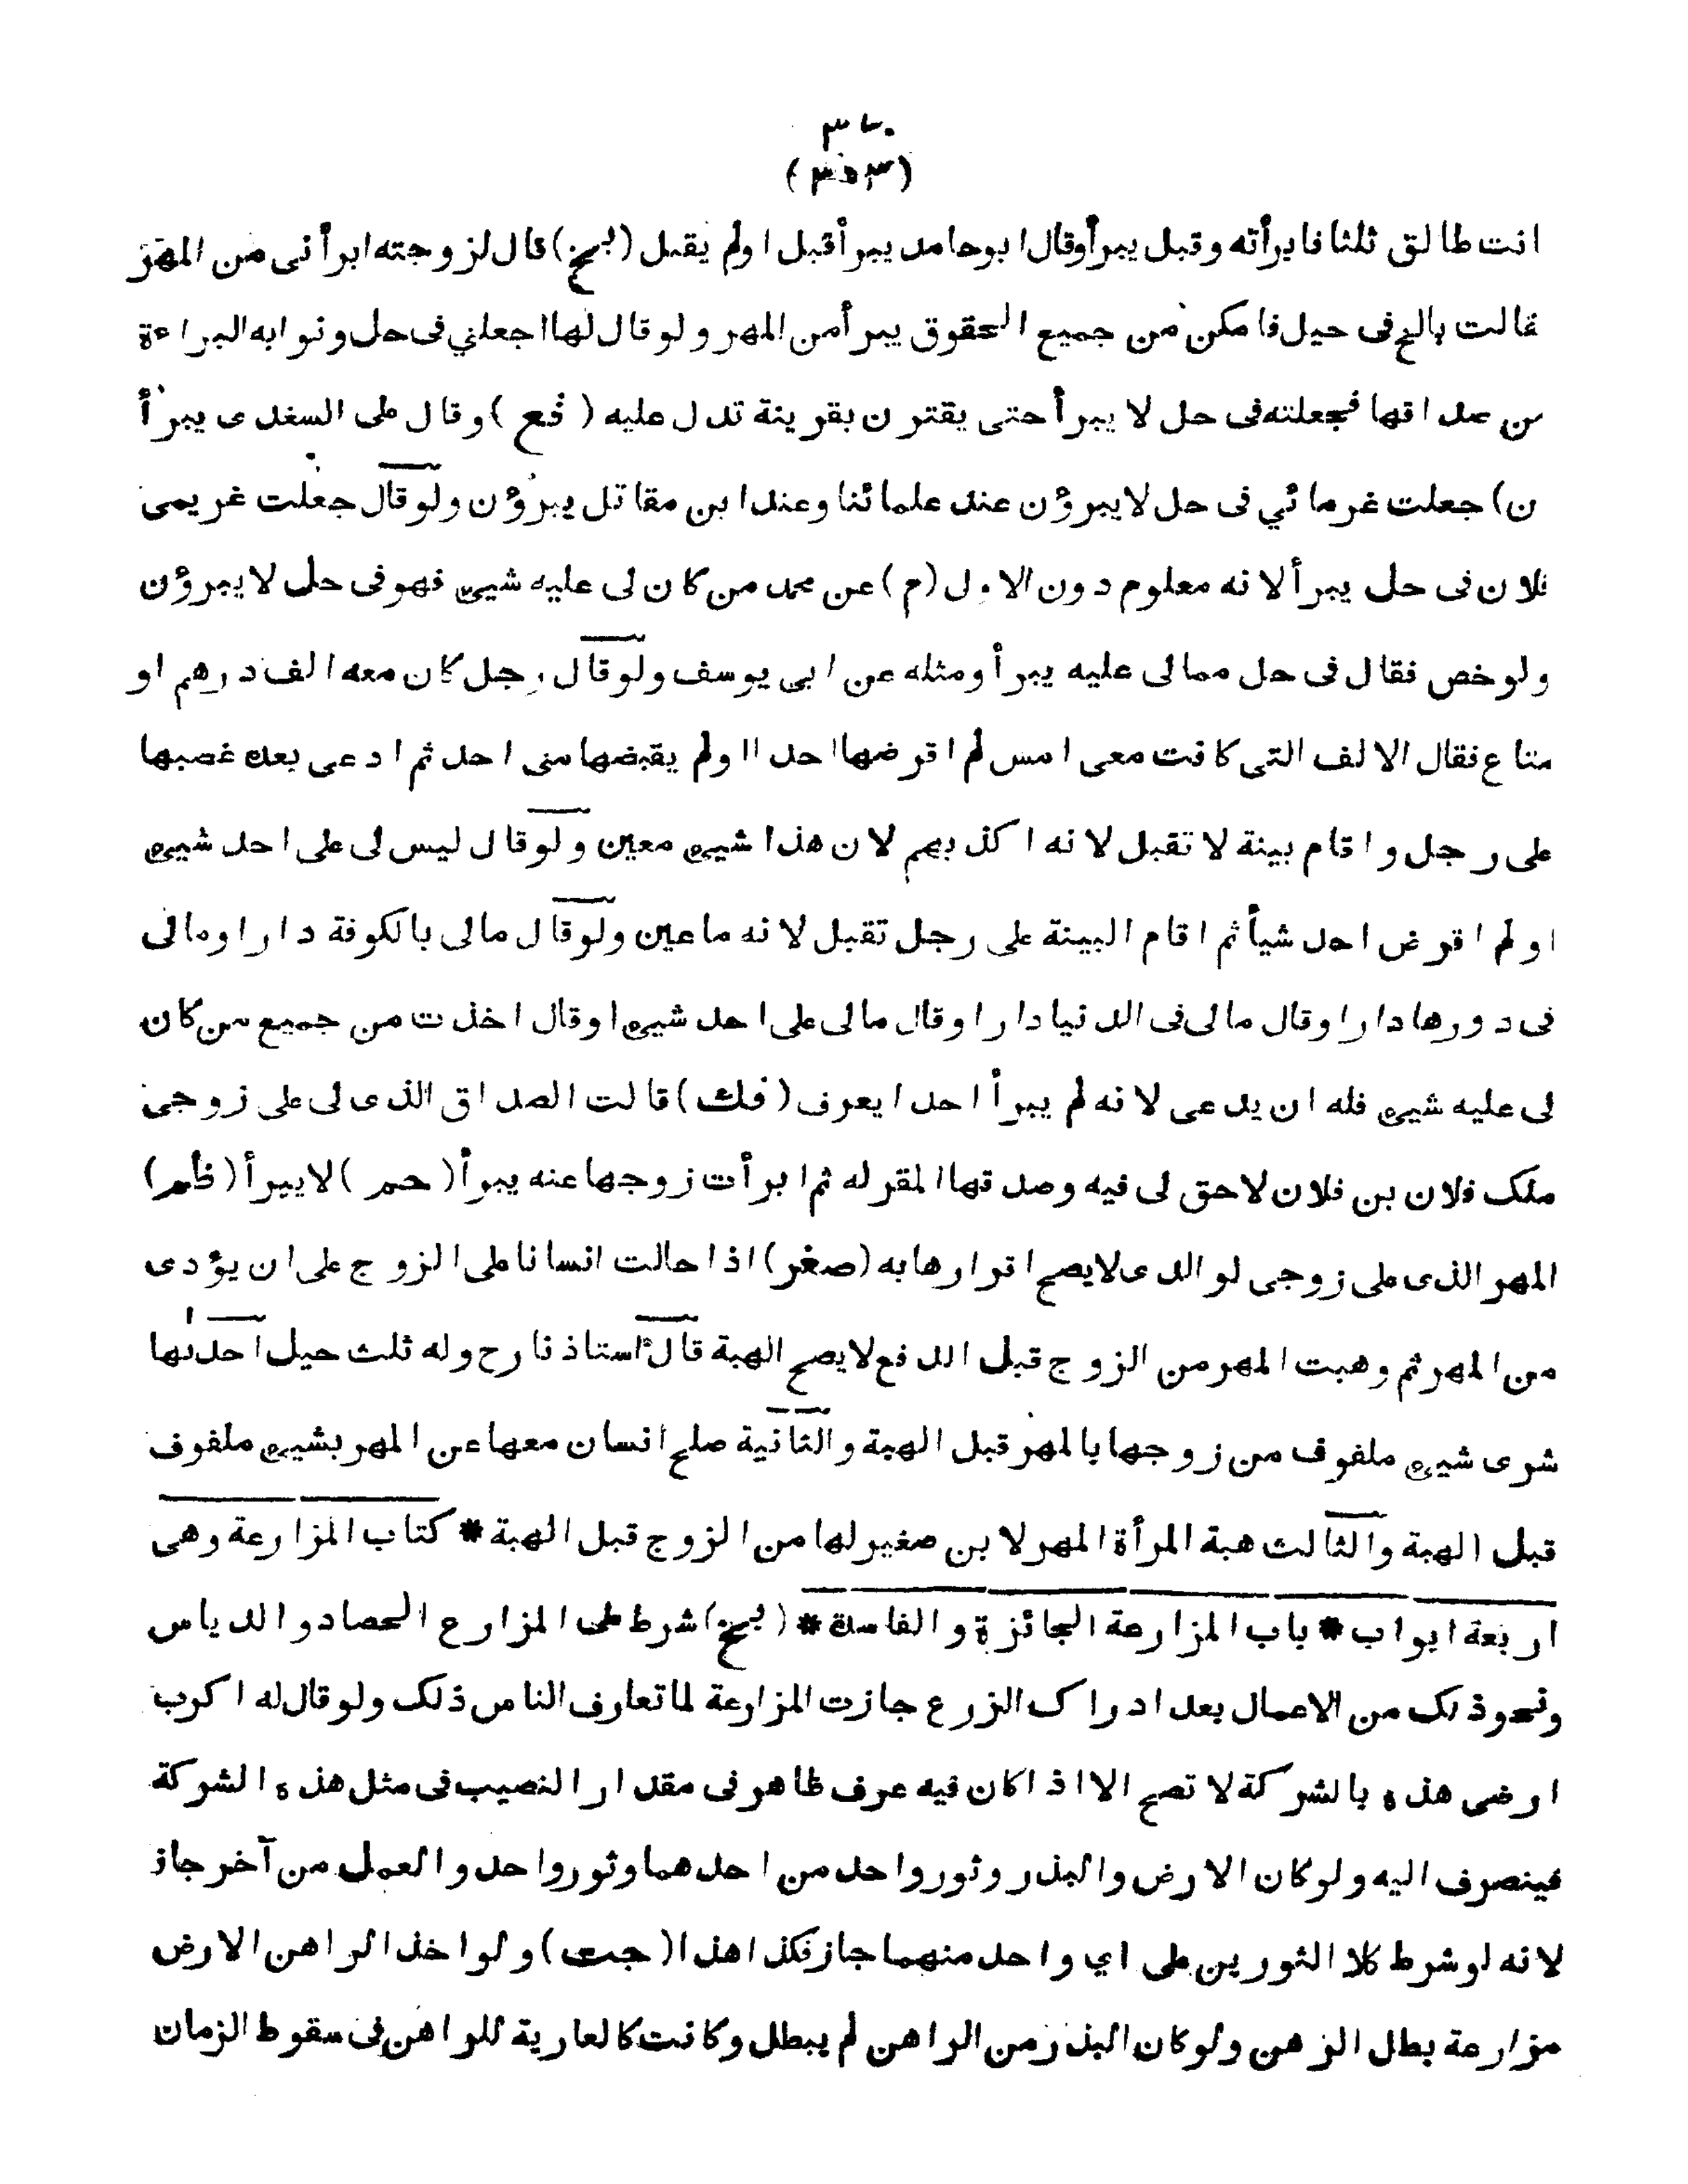 ٣٧٠
(٣٥٣)
انت طالق ثلثا فابرأته وقبل يبرأ وقال ابوحامد يبرأ قبل اولم يقبل (بخ) قال لزوجته ابرأنى من المهر
فقالت بالح فى حيل فامكن من جميع الحقوق يبرأ من المهر ولو قال لها اجعلني فى حل ونوابه البراءة
من صداقها فجعلته فى حل لا يبرأ حتى يقترن بقرينة تدل عليه (فع) وقال على السغدى يبرأ
(ن) جعلت غرمائي فى حل لايبرؤن عند علمائنا وعند ابن مقاتل يبرؤن ولو قال جعلت غريمى
فلان فى حل يبرأ لانه معلوم دون الاول (م) عن محمد من كان لى عليه شيئ فهو فى حل لا يبرؤن
ولو خص فقال فى حل ممالى عليه يبرأ ومثله عن ابى يوسف ولو قال رجل كان معه الف درهم او
متاع فقال الالف التى كانت معى امس لم اقرضها احدا اولم يقبضها منى احد ثم ادعى بعده غصبها
على رجل واقام بينة لا تقبل لانه اكذبهم لان هذا شيئ معين ولو قال ليس لى على احد شيئ
اولم اقرض احد شيأ ثم اقام البينة على رجل تقبل لانه ماعين ولو قال مالى بالكوفة دارا ومالى
فى دورها دارا وقال مالى فى الدنيا دارا وقال مالى على احد شيئ او قال اخذت من جميع من كان
لى عليه شيئ فله ان يدعى لانه لم يبرأ احدا يعرف (فك) قالت الصداق الذى لى على زوجى
ملك فلان بن فلان لاحق لى فيه وصدقها المقر له ثم ابرأت زوجها عنه يبرأ (حم) لايبرأ (ظم)
المهر الذى على زوجى لوالدى لايصح اقرارها به (صغر) اذا حالت انسانا على الزوج على ان يؤدى
من المهر ثم وهبت المهر من الزوج قبل الدفع لايصح الهبة قال استاذنا رح وله ثلث حيل احدٮها
شرى شيئ ملفوف من زوجها بالمهر قبل الهبة والثانية صلح انسان معها عن المهر بشيئ ملفوف
قبل الهبة والثالث هبة المرأة المهر لابن صغير لها من الزوج قبل الهبة * كتاب المزارعة وهى
اربعة ابواب * باب المزارعة الجائزة والفاسدة * (بخ) شرط على المزارع الحصاد والدياس
ونحو ذلك من الاعمال بعد ادراك الزرع جازت المزارعة لما تعارف الناس ذلك ولو قال له اكرب
ارضى هذه بالشركة لا تصح الا اذا كان فيه عرف ظاهر فى مقدار النصيب فى مثل هذه الشركة
فينصرف اليه ولو كان الارض والبذر وثور واحد من احدهما وثور واحد والعمل من آخر جاز
لانه لو شرط كلا الثورين على اي واحد منهما جاز فكذا هذا (جت) ولو اخذ الراهن الارض
مزارعة بطل الرهن ولو كان البذر من الراهن لم يبطل وكانت كالعارية للراهن فى سقوط الزمان